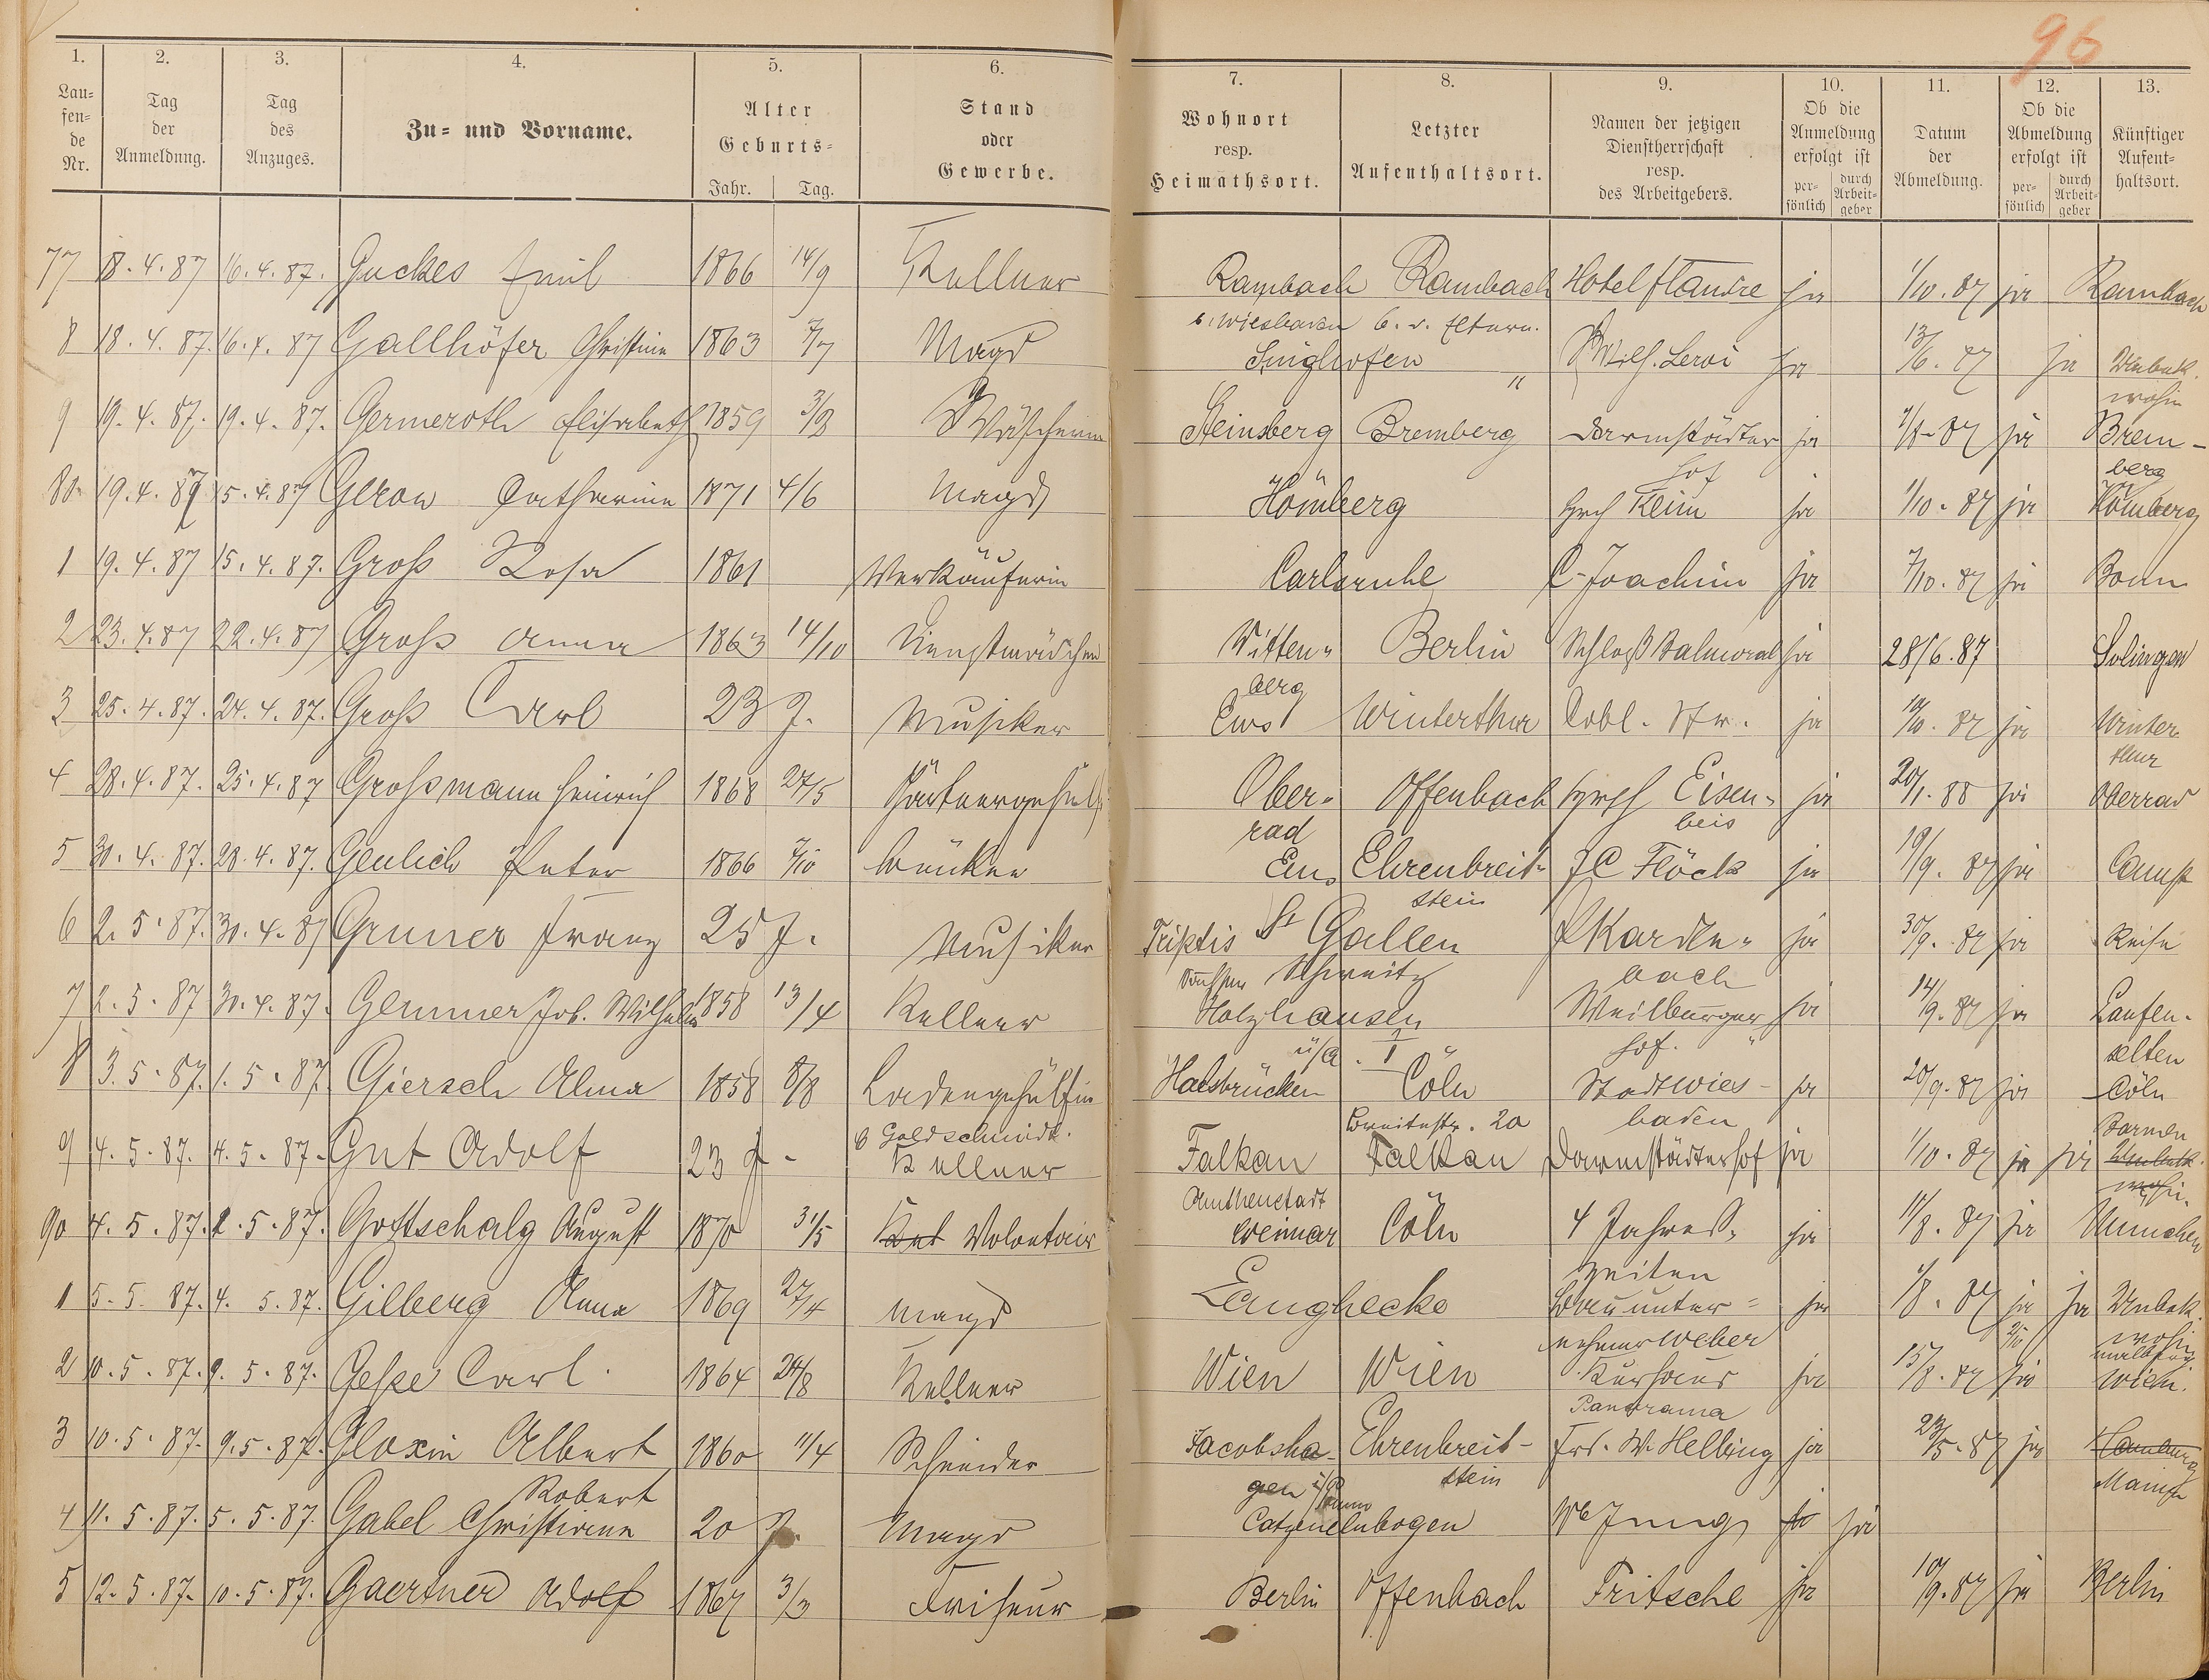 96
1. 2. 3. 4. 5. 6. 7. 8. 9. 10. 11. 12. 13.
Lau=
fen=
de
Nr.
Tag
der
Anmeldung.
Tag
des
Anzuges.
Zu= und Vorname.
Alter
Geburts=
Jahr. Tag.
Stand
oder
Gewerbe.
Wohnort
resp.
Heimathsort.
Letzter
Aufenthaltsort.
Namen der jetzigen
Dienstherrschaft
resp.
des Arbeitgebers.
Ob die
Anmeldung
erfolgt ist
per=
sönlich
durch
Arbeit=
geber
Datum
der
Abmeldung.
Ob die
Abmeldung
erfolgt ist
per=
sönlich
durch
Arbeit=
geber
Künftiger
Aufent=
haltsort.
77 18.4.87 16.4.87. Guckes Emil 1866 14/9 Kellner Rambach Rambach Hotel Flandre ja 1/10.87 ja Rambach
b. Wiesbaden b. d. Eltern.
8 18.4.87. 16.4.87 Gallhöfer Christine 1863 7/7 Magd Singhofen " Wilh. Leroi ja 13/6.87 ja Unbek.
wohin
9 19.4.87. 19.4.87. Germeroth Elisabeth 1859 3/8 Wäscherin Steinsberg Bremberg Darmstädter ja 1/8-87 ja Brem-
hof berg
80 19.4.87 15.4.87 Geron Catharine 1871 4/6 Magd Hömberg Hrch Keim ja 1/10.87 ja Hömberg
1 19.4.87 15.4.87. Groß Rosa 1861 Verkäuferin Carlsruhe C. Joachim ja 7/10.87 ja Bonn
2 23.4.87 22.4.87 Groß Anna 1863 14/10 Dienstmädchen Witten= Berlin Schloß Balmoral ja 28/6.87 Solingen
berg
3 25.4.87. 24.4.87. Groß Carl 23 J. Musiker Ems Winterthur Cobl. Str. ja 10/10.87 ja Winter
thur
4 28.4.87. 25.4.87 Großmann Heinrich 1868 27/5 Gärtnergehülf Ober= Offenbach Hrch Eisen= ja 20/1.88 ja Oberrad
rad beis
5 30.4.87. 28.4.87. Geulich Peter 1866 7/10 Ems Ehrenbreit= J C Flöck ja 19/9.87 ja Camp
stein
6 2.5.87. 30.4.87 Gruner Franz 25 J. Musiker Triptis St Gallen P Karde= ja 30/9.87 ja Reise
Schweitz bach
7 2.5.87 30.4.87. Joh. Wilhelm 1858 13/4 Kellner Holzhausen Weilburger ja 14/9.87 ja Laufen=
hof. selten
8 3.5.87. 1.5.87. Giersch Alma 1858 8/8 Ladengehülfin Halsbrücken Cöln Stadt Wies- ja 20/9.87 ja Cöln
b Goldschmidt. Breitestr. 20 baden Barmen
9 4.5.87. 4.5.87. Gut Adolf 23 J. Kellner Falkau Falkau Darmstädterhof ja 1/10.87 ja ja Unbek.
wohin.
90 4.5.87. 2.5.87. Gottschalg August 1870 31/5 Volontair Weimar Cöln 4 Jahres= ja 11/8.87 ja München
zeiten
1 5.5.87. 4.5.87. Gilberg Anna 1869 27/4 Magd Langhecke Bauunter= ja 1/8.87 ja ja Unbek.
nehmer Weber wohin
2 10.5.87. 9.5.87. Geße Carl. 1864 24/8 Kellner Wien Wien Kurhaus ja 15/8.87 ja Wien.
Panorama
3 10.5.87. 9.5.87. Gloxin Albert 1860 11/4 Schneider Jacobsha- Ehrenbreit- Frd. W. Helbing ja 23/5.87 ja Homburg
Robert gen i/Pomm stein Mainz
4 11.5.87. 5.5.87. Gabel Christiane 20 J. Magd Catzenelnbogen We Jung ja ja
5 12.5.87. 10.5.87. Gaertner Adolf 1867 3/3 Friseur Berlin Offenbach Fritsche ja 10/9.87 ja Berlin